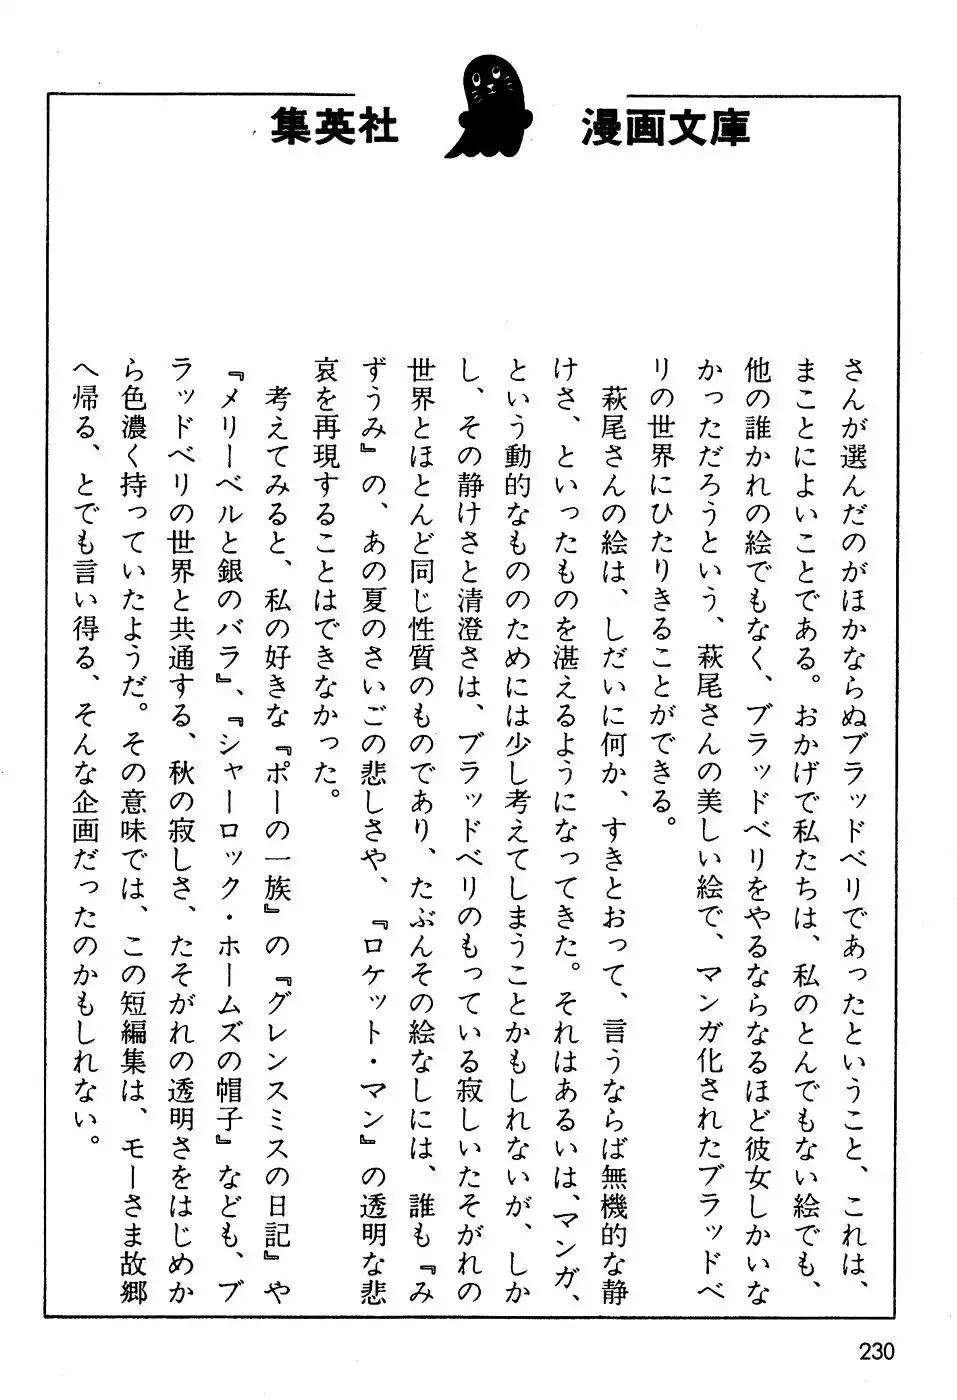 集英社 漫画文庫
さんが選んだのがほかならぬブラッドベリであったということ、これは、
まことによいことである。おかげで私たちは、私のとんでもない絵でも、
他の誰かれの絵でもなく、ブラッドベリをやるならなるほど彼女しかいな
かっただろうという、萩尾さんの美しい絵で、マンガ化されたブラッドベ
リの世界にひたりきることができる。
萩尾さんの絵は、しだいに何か、すきとおって、言うならば無機的な静
けさ、といったものを湛えるようになってきた。それはあるいは、マンガ、
という動的なもののためには少し考えてしまうことかもしれないが、しか
し、その静けさと清澄さは、ブラッドベリのもっている寂しいたそがれの
世界とほとんど同じ性質のものであり、たぶんその絵なしには、誰も『み
ずうみ』の、あの夏のさいごの悲しさや、『ロケット・マン』の透明な悲
哀を再現することはできなかった。
考えてみると、私の好きな『ポーの一族』の『グレンスミスの日記』や
『メリーベルと銀のバラ』、『シャーロック・ホームズの帽子』なども、ブ
ラッドベリの世界と共通する、秋の寂しさ、たそがれの透明さをはじめか
ら色濃く持っていたようだ。その意味では、この短編集は、モーさま故郷
へ帰る、とでも言い得る、そんな企画だったのかもしれない。
230